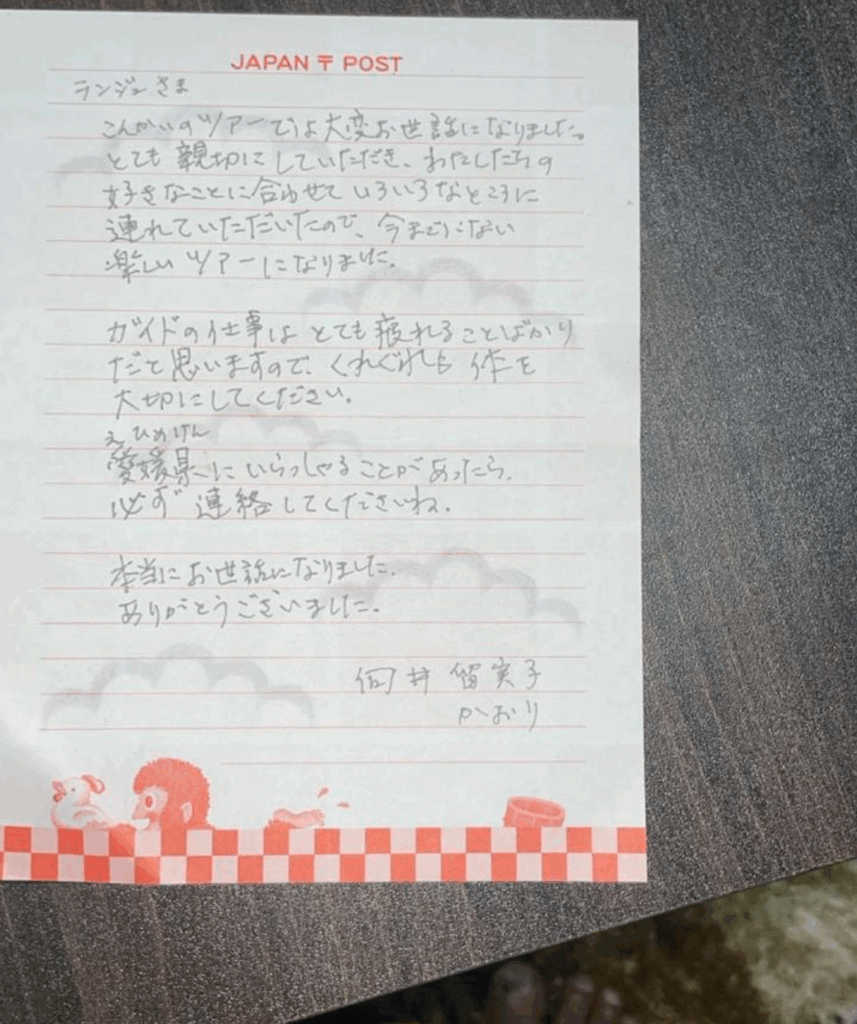 JAPAN 〒 POST
ランジュさま
こんかいのツアーでは大変お世話になりました。
とても親切にしていただき、わたしたちの
好きなことに合わせていろいろなところに
連れていただいたので、今までにない
楽しいツアーになりました。
ガイドの仕事はとても疲れることばかり
だと思いますので、くれぐれも体を
大切にしてください。
えひめけん
愛媛県にいらっしゃることがあったら、
必ず連絡してくださいね。
本当にお世話になりました。
ありがとうございました。
向井 留実子
かおり